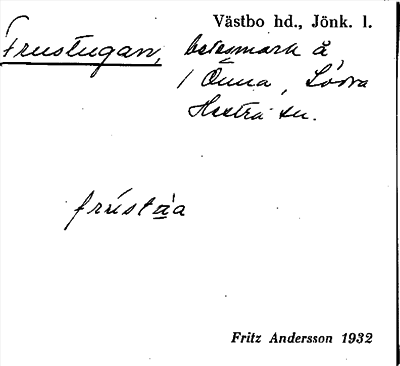 Västbo hd., Jönk. l.
Frustugan, betesmark å
/ Önna, Södra
Hestra sn.
frústå̱a
Fritz Andersson 1932